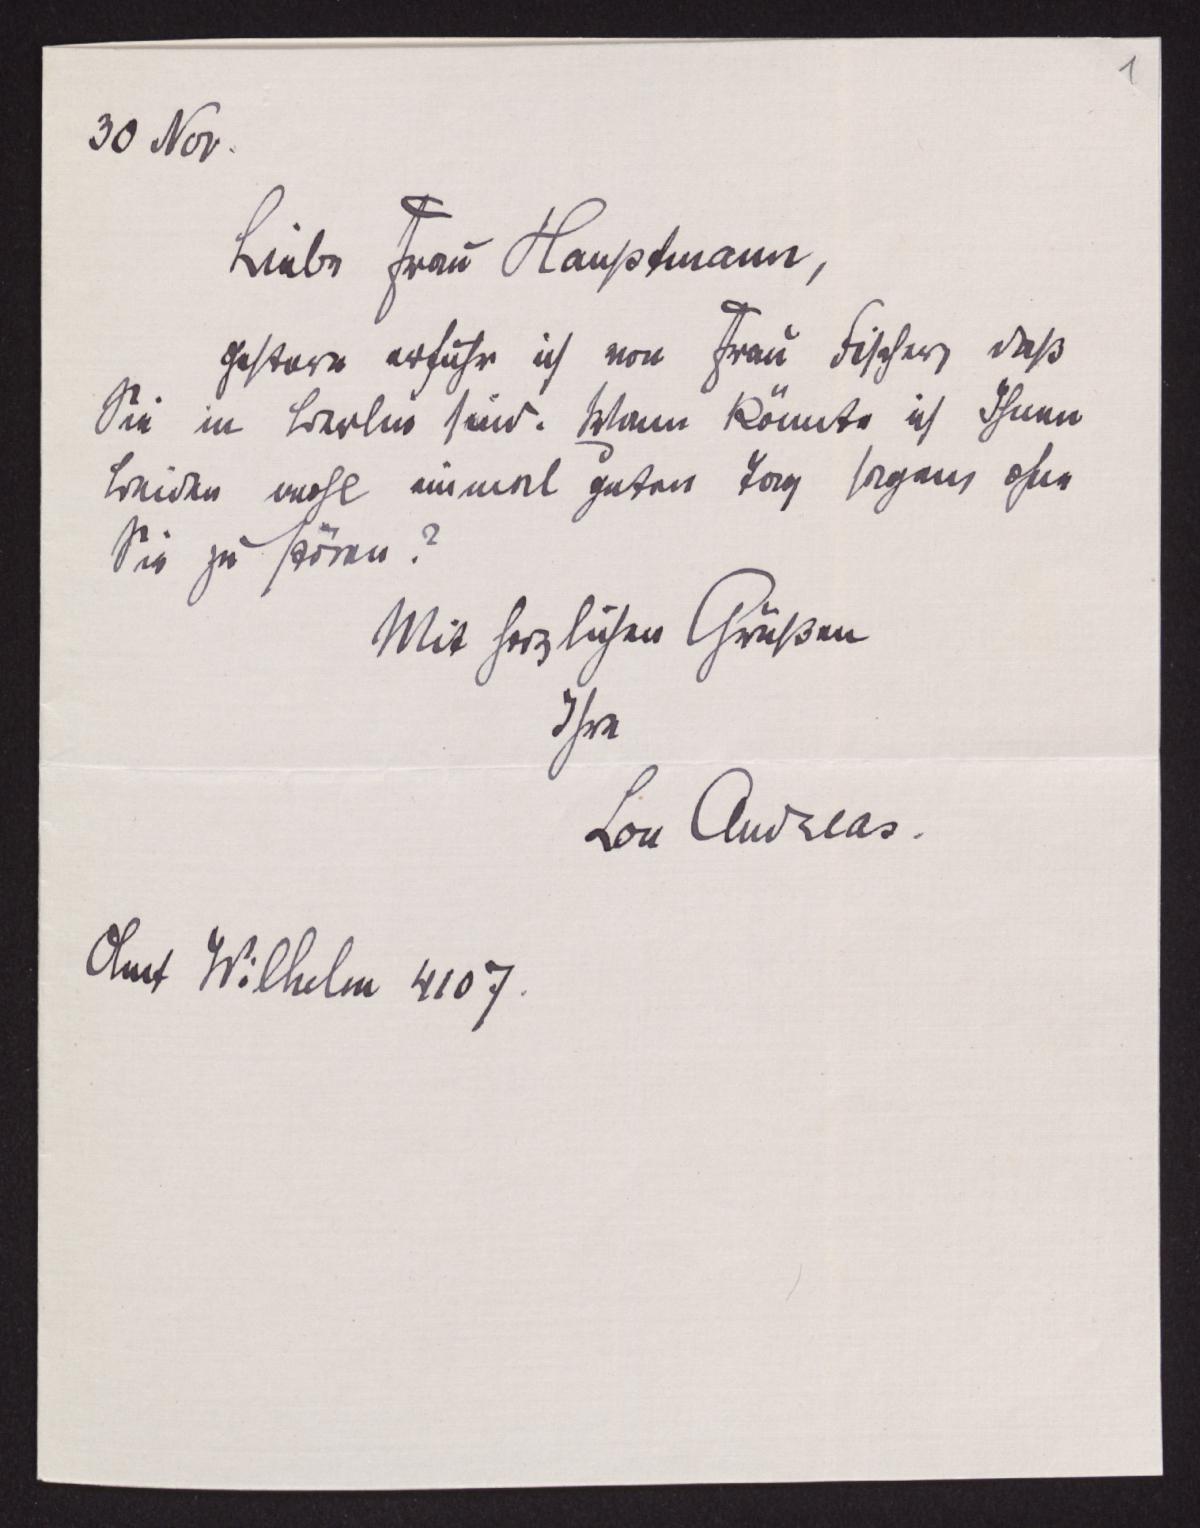 1
30 Nov.
Liebe Frau Hauptmann,
gestern erfuhr ich von Frau Fischer, daß
Sie in Berlin sind. Wann könnte ich Ihnen
beiden wohl einmal guten Tag sagen, ohne
Sie zu stören?
Mit herzlichen Grüßen
Ihre
Lou Andreas.
Amt Wilhelm 4107.